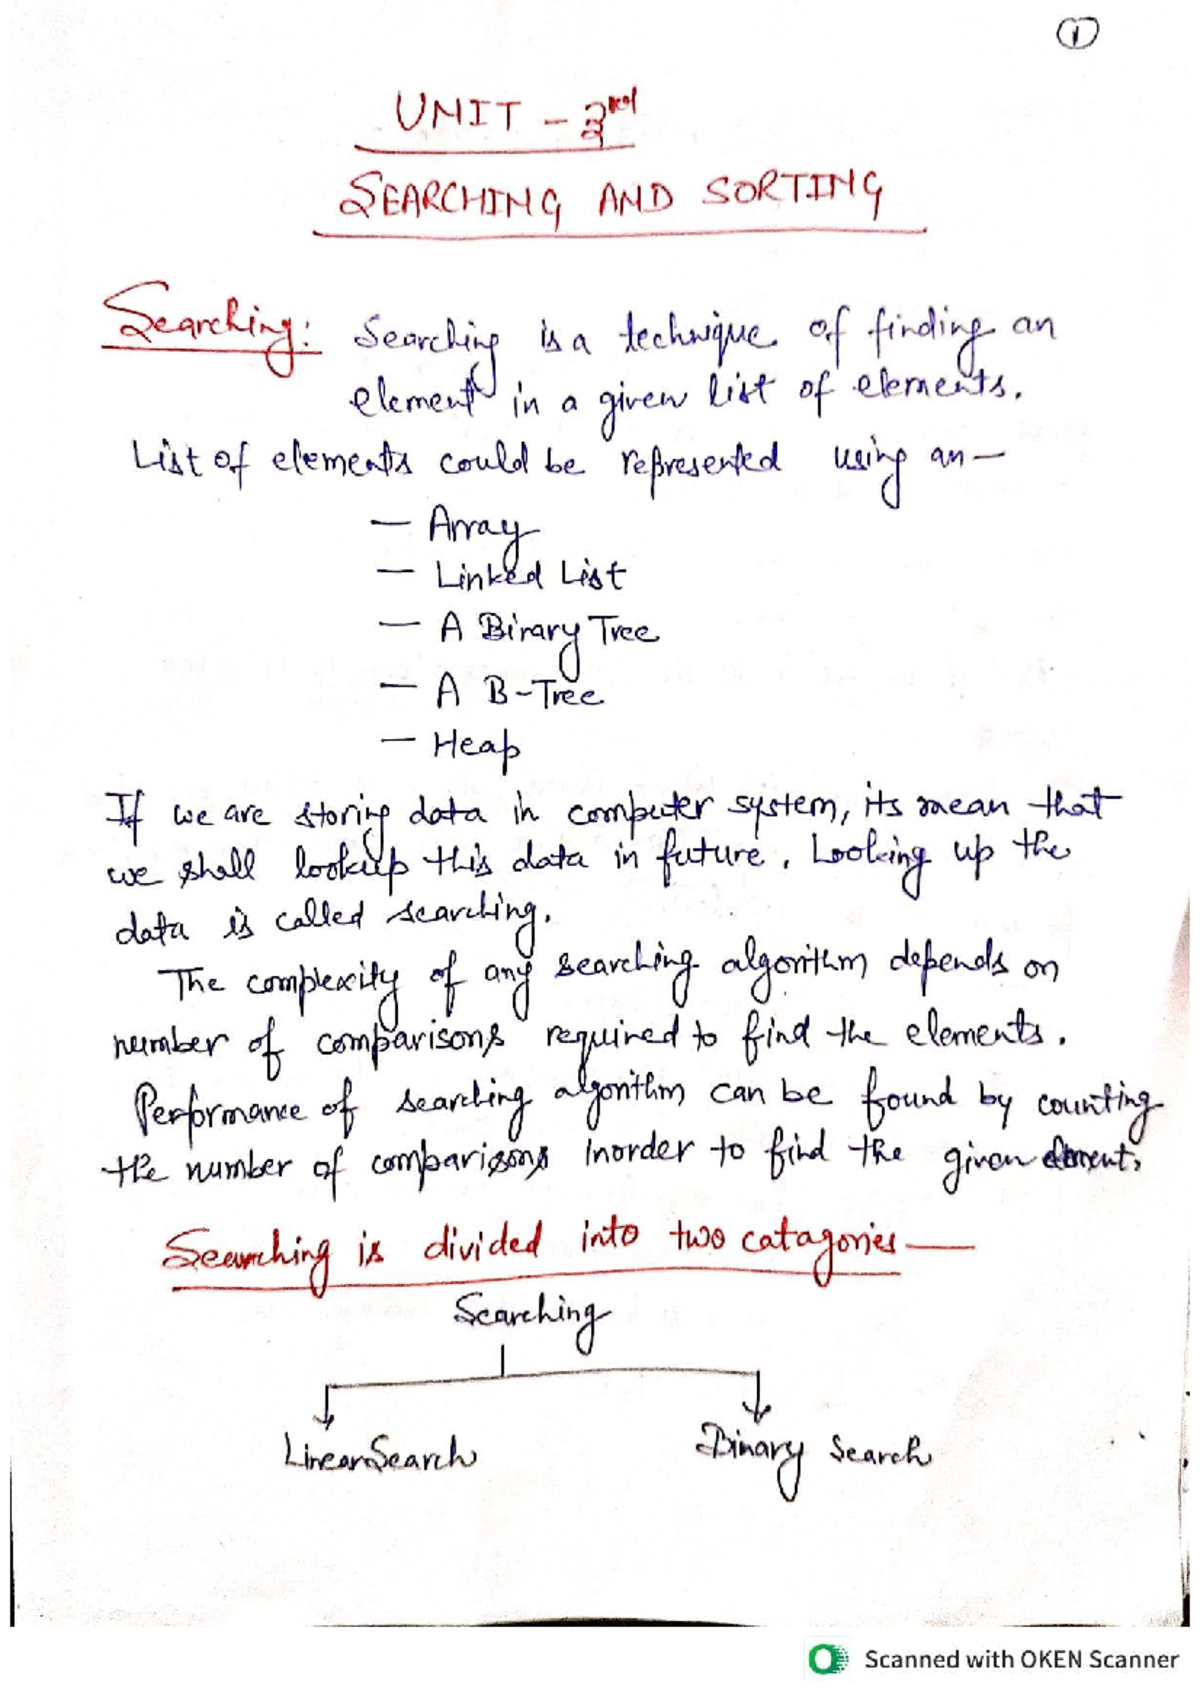 1
UNIT - 3rd
SEARCHING AND SORTING
Searching: Searching is a technique of finding an
element in a given list of elements.
List of elements could be represented using an—
— Array
— Linked List
— A Binary Tree
— A B-Tree
— Heap
If we are storing data in computer system, its mean that
we shall lookup this data in future. Looking up the
data is called searching.
The complexity of any searching algorithm depends on
number of comparisons required to find the elements.
Performance of searching algorithm can be found by counting
the number of comparisons inorder to find the given element.
Searching is divided into two catagories —
Searching
Linear Search Binary Search
Scanned with OKEN Scanner